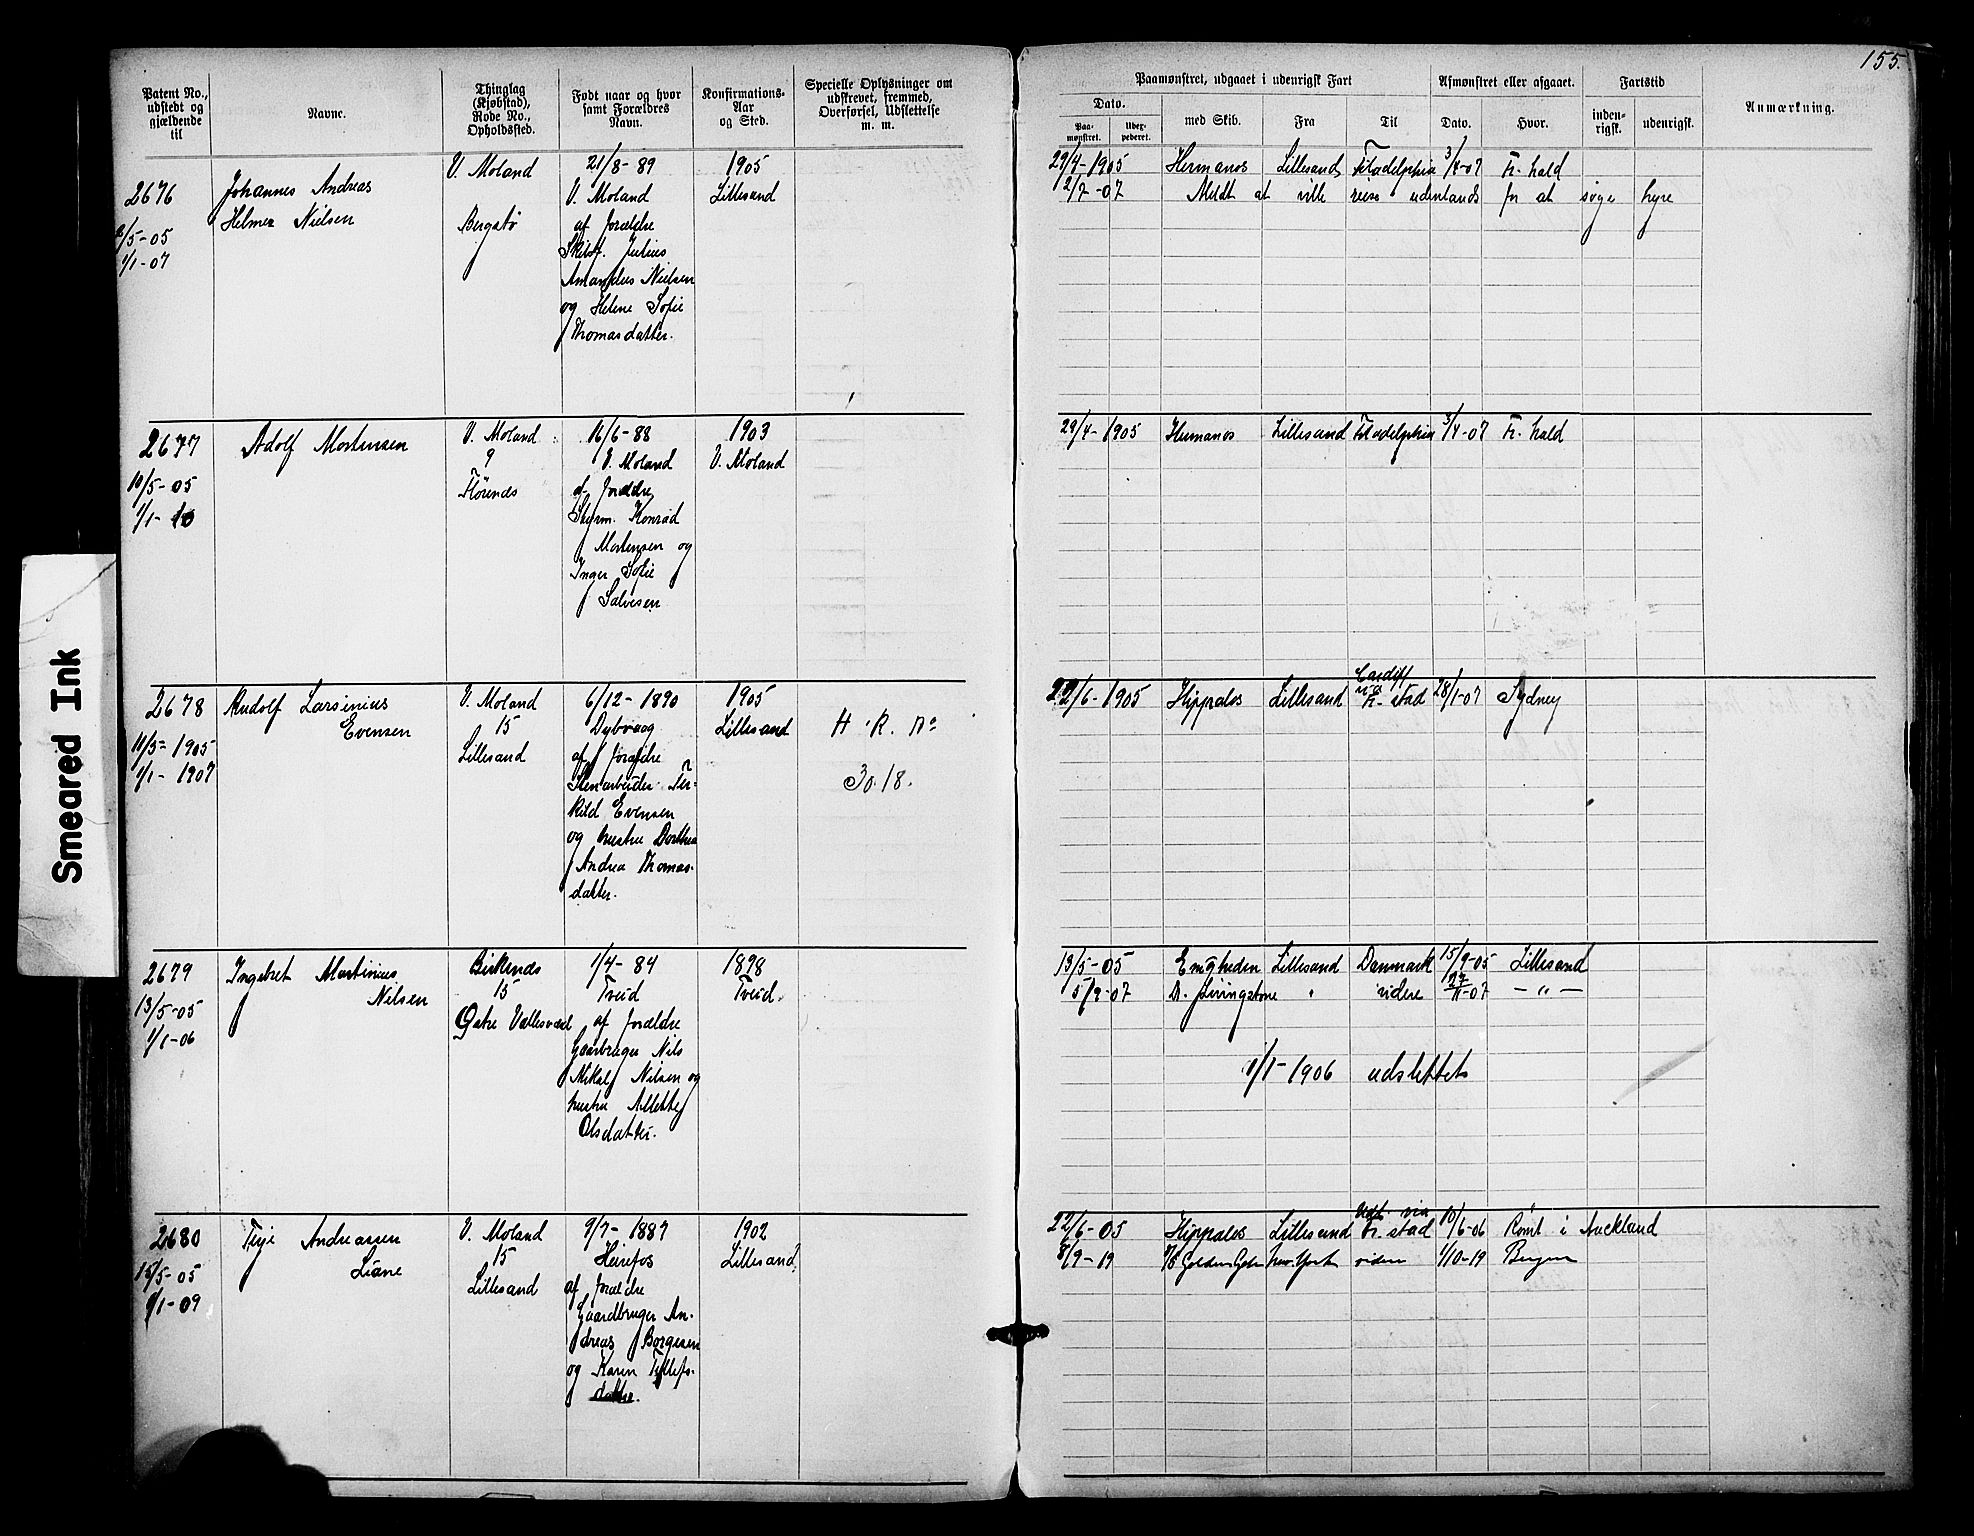 155.
Patent No., udstedt og gjældende til
Navne.
Thinglag (Kjøbstad), Rode No., Opholdssted.
Født naar og hvor samt Forældres Navn.
Konfirmations-Aar og Sted.
Specielle Oplysninger om udskrevet, fremmed, Overførsel, Udslettelse m. m.
Paamønstret, udgaaet i udenrigsk Fart
Dato.
Paa-mønstret.
med Skib.
Fra
Til
Afmønstret eller afgaaet.
Dato.
Hvor.
Fartstid
inden-rigsk.
udenrigsk.
Anmærkning.
2676
/5-05
1/1-07
Johannes Andreas
Helmer Nielsen
V. Moland
Bergstø
21/8-89
V. Moland
af forældre
Skibsf. Julius
Amandus Nielsen
og Helene Sofie
Thomasdatter.
1905
Lillesand
29/4-1905 Hermanos Lillesand Filadelphia 3/4-07 Fr. hald
2/7-07 Meldt at ville reise udenlands for at søge hyre
2677
10/5-05
1/1-10
Adolf Mortensen
V. Moland
9
16/6-88
V. Moland
af forældre
Styrm. Konrad
Mortensen og
Inger Sofie
Salvesen
1903
V. Moland
29/4-1905 Hermanos Lillesand Filadelphia 3/4-07 Fr. hald
2678
11/5-1905
1/1-1907
Rudolf Larsinius
Evensen
V. Moland
15
Lillesand
6/12-1890
Dybvaag
af forældre
Stenarbeider Ter-
kild Evensen
og hustru Dorthea
Andrea Thomas-
datter.
1905
Lillesand
H. R. No
30.18.
22/6-1905 Hippalos Lillesand Cardiff via Fr. stad 28/1-07 Sydney
2679
13/5-05
1/1-06
Ingebret Martinius
Nilsen
Birkenæs
15
Østre Vallesværd
1/4-84
Tveid
af forældre
Gaarbruger Nils
Mikal Nilsen og
hustru Allette
Olsdatter.
1898
Tveid.
13/5-05 Emigheden Lillesand Danmark 15/9-05 Lillesand
5/9-07 D. Livingstone " videre 27/11-07 - " -
1/1-1906 udslettet
2680
15/5-05
1/1-09
Terje Andreassen
Liane
V. Moland
15
Lillesand
9/7-1887
Heirefos
af forældre
Gaardbruger An-
dreas Borgesen
og Karen Tellefs-
datter.
1902
Lillesand.
22/6-05 Hippalos Lillesand via Fr. stad 10/6-06 Rømt i Auckland
8/9-19 Golden Gate New York viden 1/10-19 Bergen
Smeared Ink